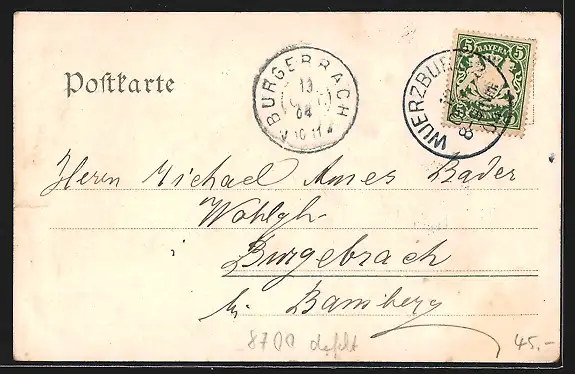 Postkarte
BURGEBRACH
13
04
V 10-11
WUERZBURG
5 BAYERN 5
Herrn Michael Bader
Wohlgb.
Burgebrach
bei Bamberg
8700
45.-